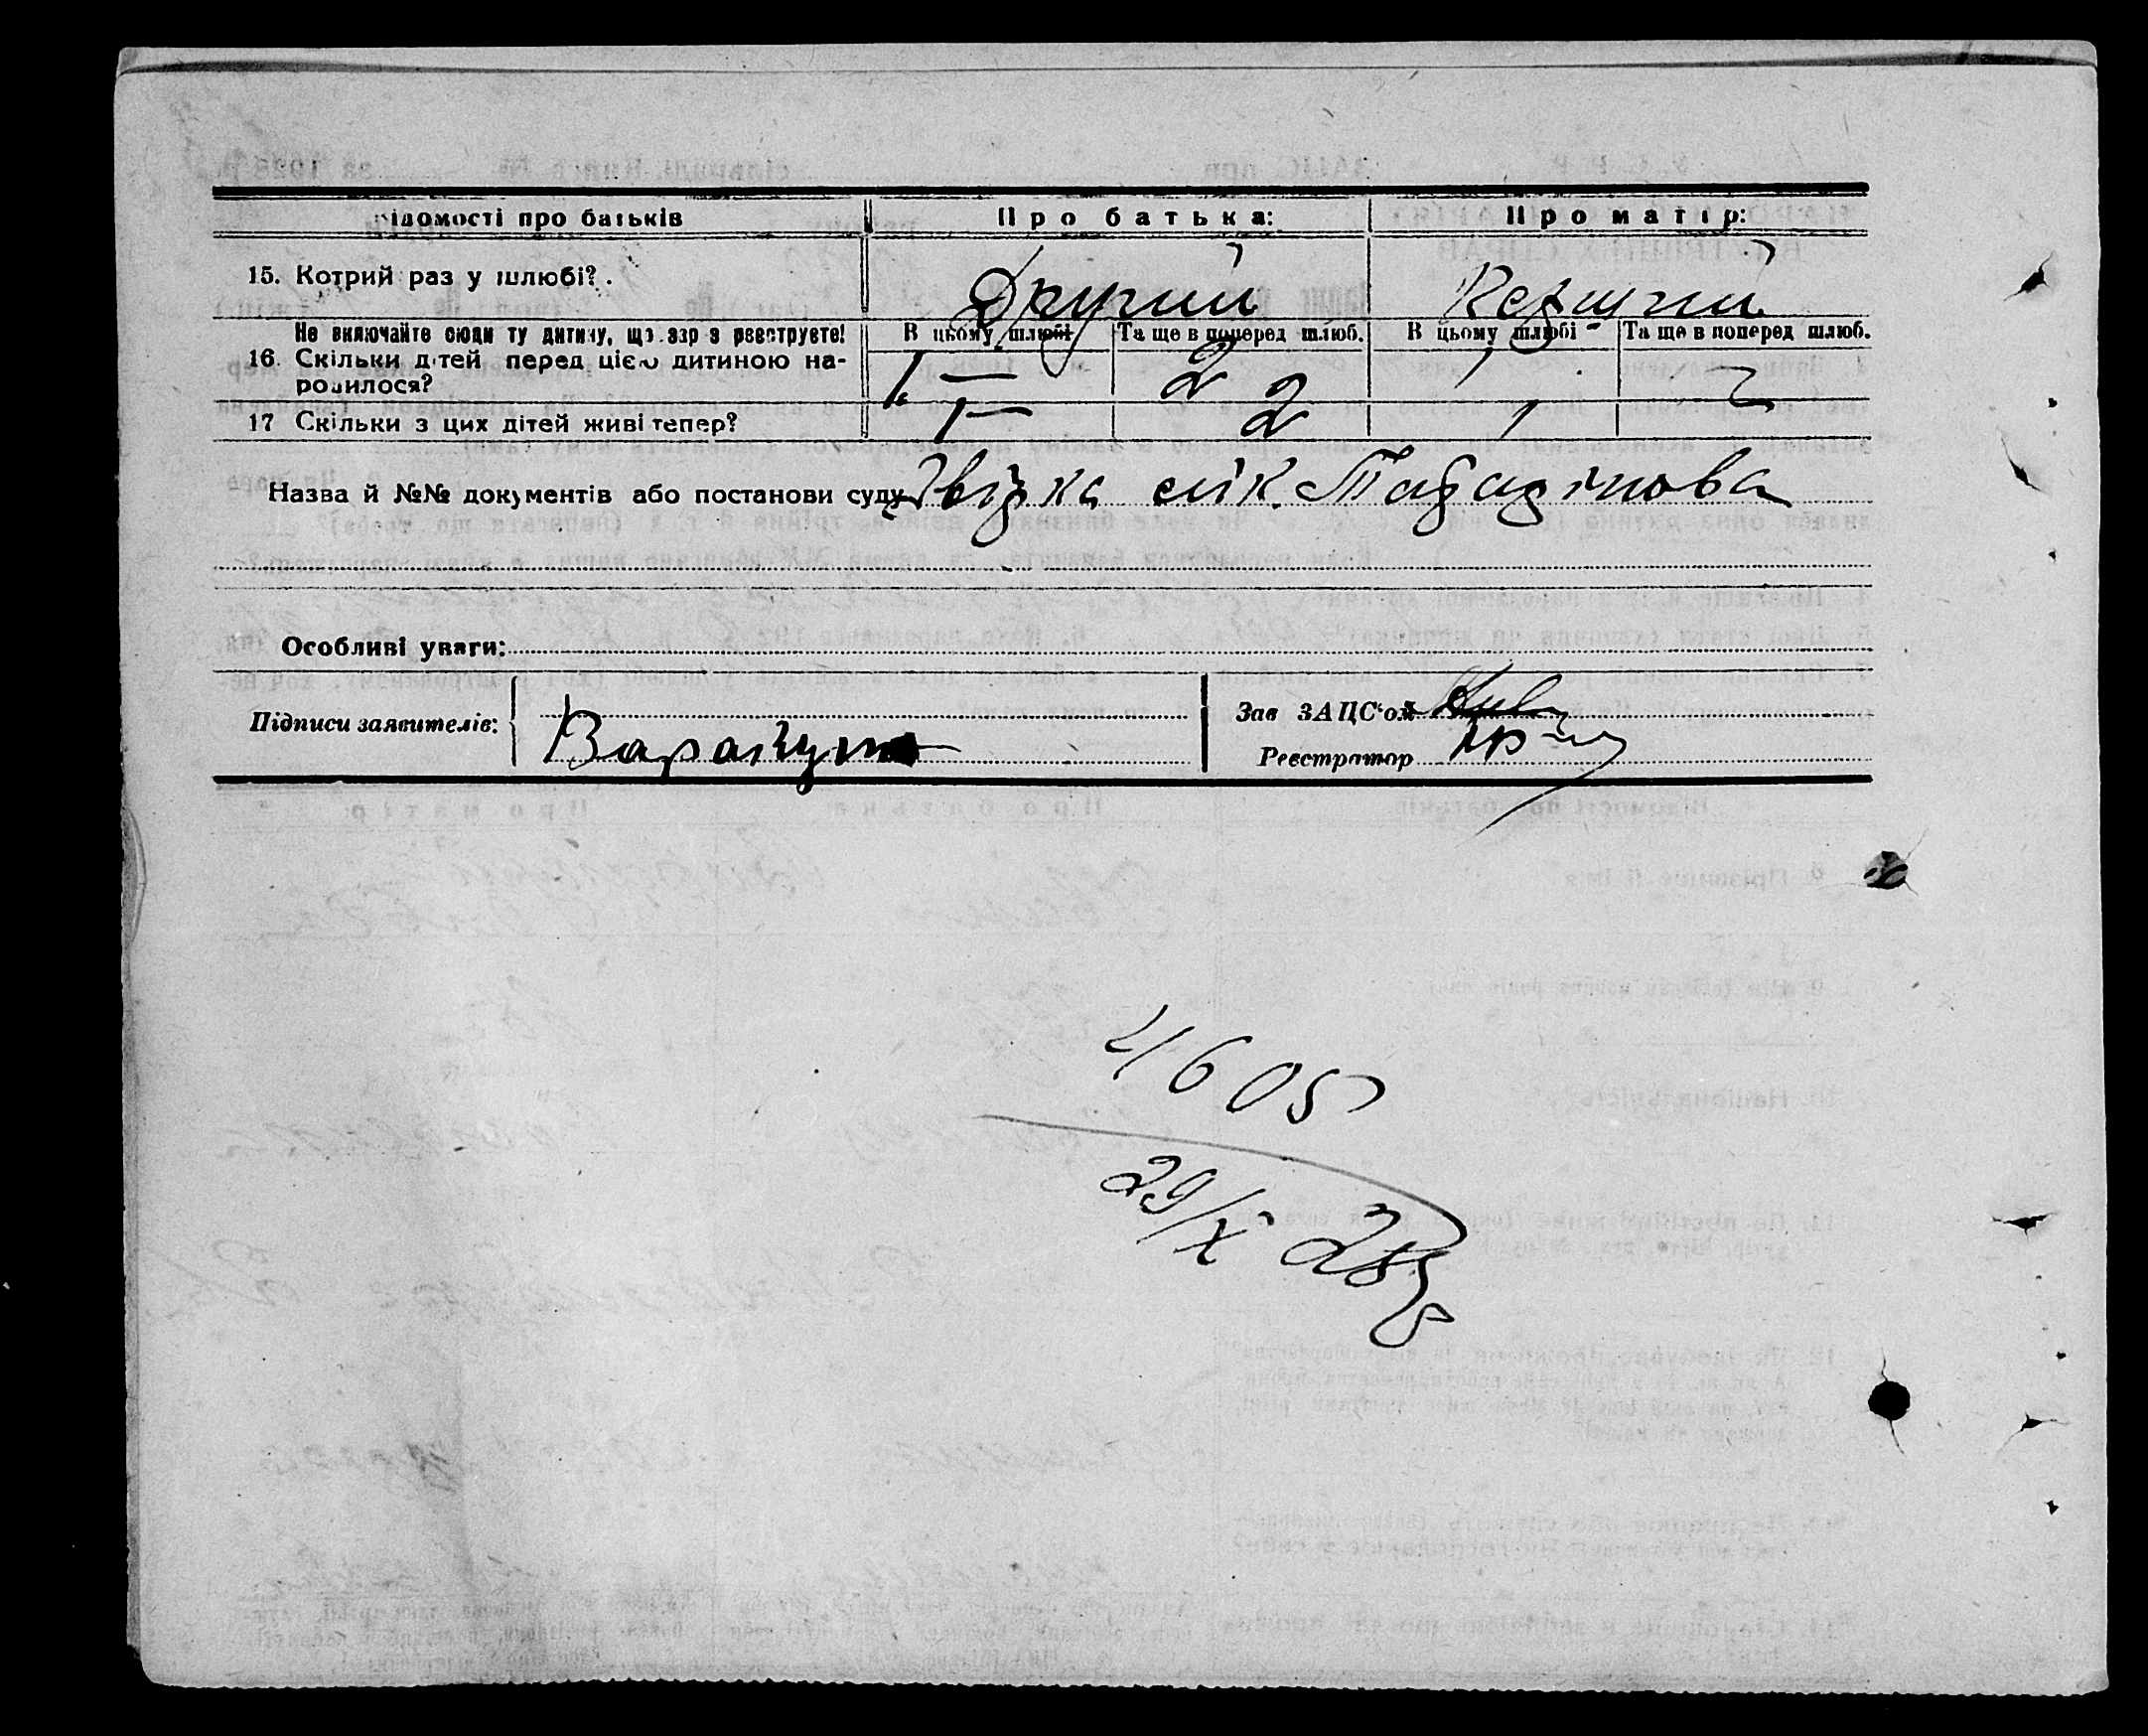 Відомості про батьків
Про батька:
Про матір:
15. Котрий раз у шлюбі?
Другий
Перший
Не включайте сюди ту дитину, що зараз реєструєте!
В цьому шлюбі
Та ще в поперед шлюб.
В цьому шлюбі
Та ще в поперед шлюб.
16. Скільки дітей перед цією дитиною на-
родилося?
1 2 1
17 Скільки з цих дітей живі тепер?
1 2 1
Назва й №№ документів або постанови суду
Особливі уваги:
Підписи заявителів:
Зав ЗАЦС'ом
Реєстратор
4605
29/X 28р